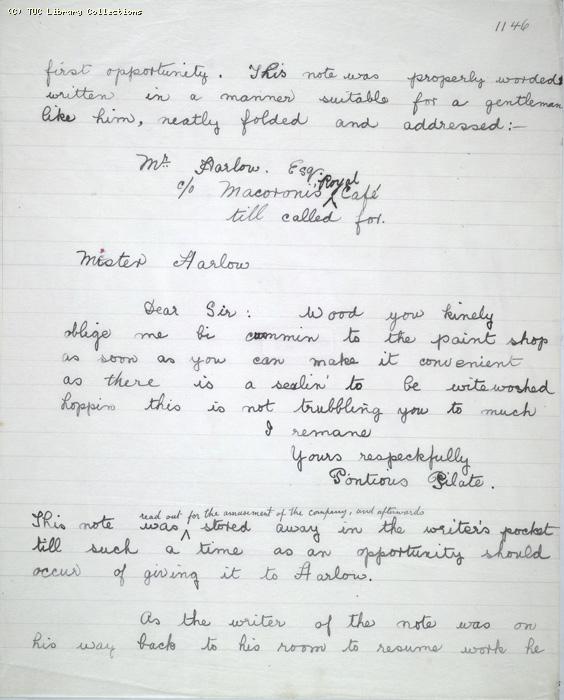 (C) TUC Library Collections
1146
first opportunity. This note was properly worded,
written in a manner suitable for a gentleman
like him, neatly folded and addressed:-
Mr. Harlow. Esq.
c/o Macoroni's Royal Café
till called for.
Mister Harlow
Dear Sir: Wood you kinely
oblige me bi cummin to the paint shop
as soon as you can make it convenient
as there is a sealin' to be wite-woshed
hoppin this is not trubbling you to much
I remane
Yours respeckfully
Pontious Pilate.
read out for the amusement of the company, and afterwards
This note was stored away in the writer's pocket
till such a time as an opportunity should
occur of giving it to Harlow.
As the writer of the note was on
his way back to his room to resume work he